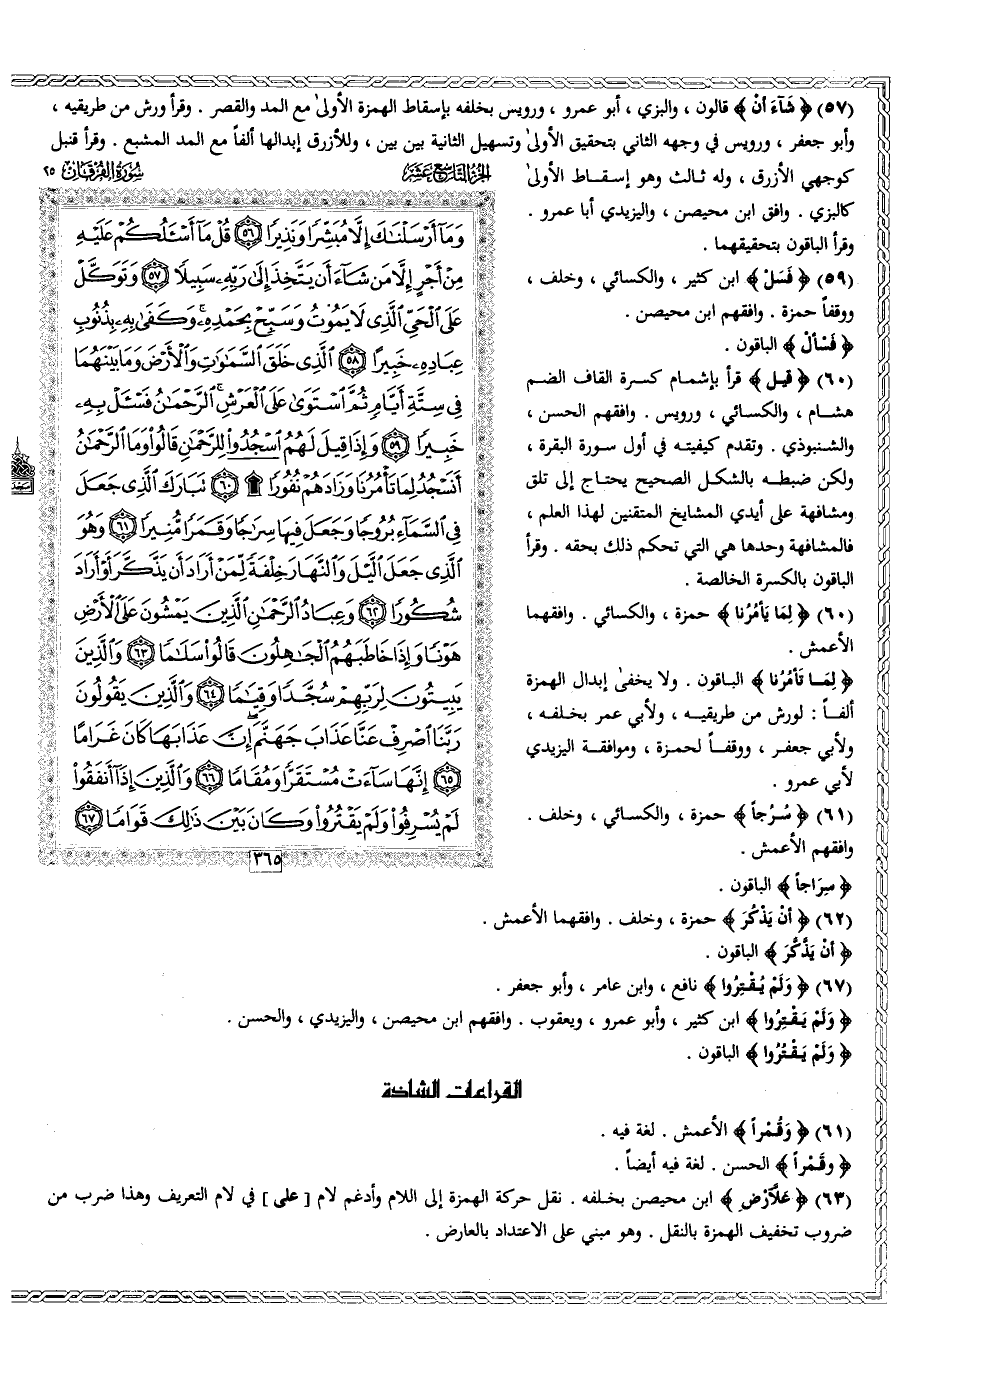 (٥٧) ﴿ شَآءَ أنْ ﴾ قالون ، والبزي ، أبو عمرو ، ورويس بخلفه بإسقاط الهمزة الأولىٰ مع المد والقصر . وقرأ ورش من طريقيه ،
وأبو جعفر ، ورويس في وجهه الثاني بتحقيق الأولىٰ وتسهيل الثانية بين بين ، وللأزرق إبدالها ألفاً مع المد المشبع . وقرأ قنبل
كوجهي الأزرق ، وله ثالث وهو إسقاط الأولىٰ
كالبزي . وافق ابن محيصن ، واليزيدي أبا عمرو .
وقرأ الباقون بتحقيقهما .
(٥٩) ﴿ فَسَلْ ﴾ ابن كثير ، والكسائي ، وخلف ،
ووقفاً حمزة . وافقهم ابن محيصن .
﴿ فَسْألْ ﴾ الباقون .
(٦٠) ﴿ قيل ﴾ قرأ بإشمام كسرة القاف الضم
هشام ، والكسائي ، ورويس . وافقهم الحسن ،
والشنبوذي . وتقدم كيفيته في أول سورة البقرة ،
ولكن ضبطه بالشكل الصحيح يحتاج إلى تلق
ومشافهة على أيدي المشايخ المتقنين لهذا العلم ،
فالمشافهة وحدها هي التي تحكم ذلك بحقه . وقرأ
الباقون بالكسرة الخالصة .
(٦٠) ﴿ لِمَا يَأمُرُنا ﴾ حمزة ، والكسائي . وافقهما
الأعمش .
﴿ لِمَا تَأمُرُنا ﴾ الباقون . ولا يخفىٰ إبدال الهمزة
ألفاً : لورش من طريقيه ، ولأبي عمر بخلفه ،
ولأبي جعفر ، ووقفاً لحمزة ، وموافقة اليزيدي
لأبي عمرو .
(٦١) ﴿ سُرُجاً ﴾ حمزة ، والكسائي ، وخلف .
وافقهم الأعمش .
﴿ سِرَاجاً ﴾ الباقون .
(٦٢) ﴿ أنْ يَذْكُرَ ﴾ حمزة ، وخلف . وافقهما الأعمش .
﴿ أنْ يَذَّكَّرَ ﴾ الباقون .
(٦٧) ﴿ وَلَمْ يُقْتِرُوا ﴾ نافع ، وابن عامر ، وأبو جعفر .
﴿ وَلَمْ يَقْتِرُوا ﴾ ابن كثير ، وأبو عمرو ، ويعقوب . وافقهم ابن محيصن ، واليزيدي ، والحسن .
﴿ وَلَمْ يَقْتُرُوا ﴾ الباقون .
الجزء التاسع عشر
سورة الفرقان ٢٥
وَمَآ أَرْسَلْنَٰكَ إِلَّا مُبَشِّرًا وَنَذِيرًا ٥٦ قُلْ مَآ أَسْـَٔلُكُمْ عَلَيْهِ
مِنْ أَجْرٍ إِلَّا مَن شَآءَ أَن يَتَّخِذَ إِلَىٰ رَبِّهِۦ سَبِيلًا ٥٧ وَتَوَكَّلْ
عَلَى ٱلْحَىِّ ٱلَّذِى لَا يَمُوتُ وَسَبِّحْ بِحَمْدِهِۦ ۚ وَكَفَىٰ بِهِۦ بِذُنُوبِ
عِبَادِهِۦ خَبِيرًا ٥٨ ٱلَّذِى خَلَقَ ٱلسَّمَٰوَٰتِ وَٱلْأَرْضَ وَمَا بَيْنَهُمَا
فِى سِتَّةِ أَيَّامٍ ثُمَّ ٱسْتَوَىٰ عَلَى ٱلْعَرْشِ ۚ ٱلرَّحْمَٰنُ فَسْـَٔلْ بِهِۦ
خَبِيرًا ٥٩ وَإِذَا قِيلَ لَهُمُ ٱسْجُدُوا۟ لِلرَّحْمَٰنِ قَالُوا۟ وَمَا ٱلرَّحْمَٰنُ
أَنَسْجُدُ لِمَا تَأْمُرُنَا وَزَادَهُمْ نُفُورًا ۩ ٦٠ تَبَارَكَ ٱلَّذِى جَعَلَ
فِى ٱلسَّمَآءِ بُرُوجًا وَجَعَلَ فِيهَا سِرَٰجًا وَقَمَرًا مُّنِيرًا ٦١ وَهُوَ
ٱلَّذِى جَعَلَ ٱلَّيْلَ وَٱلنَّهَارَ خِلْفَةً لِّمَنْ أَرَادَ أَن يَذَّكَّرَ أَوْ أَرَادَ
شُكُورًا ٦٢ وَعِبَادُ ٱلرَّحْمَٰنِ ٱلَّذِينَ يَمْشُونَ عَلَى ٱلْأَرْضِ
هَوْنًا وَإِذَا خَاطَبَهُمُ ٱلْجَٰهِلُونَ قَالُوا۟ سَلَٰمًا ٦٣ وَٱلَّذِينَ
يَبِيتُونَ لِرَبِّهِمْ سُجَّدًا وَقِيَٰمًا ٦٤ وَٱلَّذِينَ يَقُولُونَ
رَبَّنَا ٱصْرِفْ عَنَّا عَذَابَ جَهَنَّمَ ۖ إِنَّ عَذَابَهَا كَانَ غَرَامًا
٦٥ إِنَّهَا سَآءَتْ مُسْتَقَرًّا وَمُقَامًا ٦٦ وَٱلَّذِينَ إِذَآ أَنفَقُوا۟
لَمْ يُسْرِفُوا۟ وَلَمْ يَقْتُرُوا۟ وَكَانَ بَيْنَ ذَٰلِكَ قَوَامًا ٦٧
٣٦٥
القراءات الشاذة
(٦١) ﴿ وَقُمْراً ﴾ الأعمش . لغة فيه .
﴿ وقَمْراً ﴾ الحسن . لغة فيه أيضاً .
(٦٣) ﴿ عَلَّرْضِ ﴾ ابن محيصن بخلفه . نقل حركة الهمزة إلى اللام وأدغم لام [ على ] في لام التعريف وهذا ضرب من
ضروب تخفيف الهمزة بالنقل . وهو مبني على الاعتداد بالعارض .